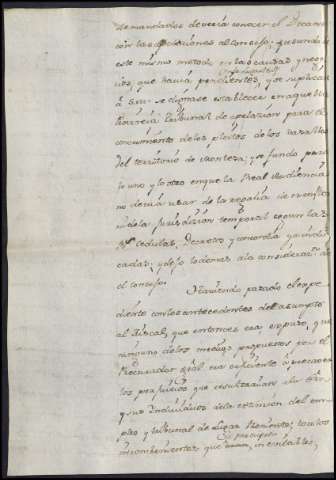 demandarlos deveria conocer el Decano
con las apelaciones al consejo, que
este mismo metodo en las causas y nego-
cios, que havia pendientes, y se suplicava
à S.M. se dignase establecer en aquella
Tribunal de apelacion para el
conocimiento de los pleitos de los vasallos
del territorio de Montesa; y se fundò para
lo uno y lo otro en que la Real Audiencia
no devia usar de la regalia de
de la Jurisdicion temporal segun las
R.s cedulas, Decretos y concordia
cadas; y dejò lo demas à la consideracion
el consejo.
Haviendo pasado el expe-
diente con los antecedentes del asumpto
al Fiscal, que entonces era, expuso, que
ninguno de los medios propuestos por el
Procurador gral era suficiente à precaver
los perjuicios que resultarian à la Orn,
y sus Individuos dela extincion del em-
pleo y tribunal de Lugar Theniente; todos los
inconvenientes que inevitables,